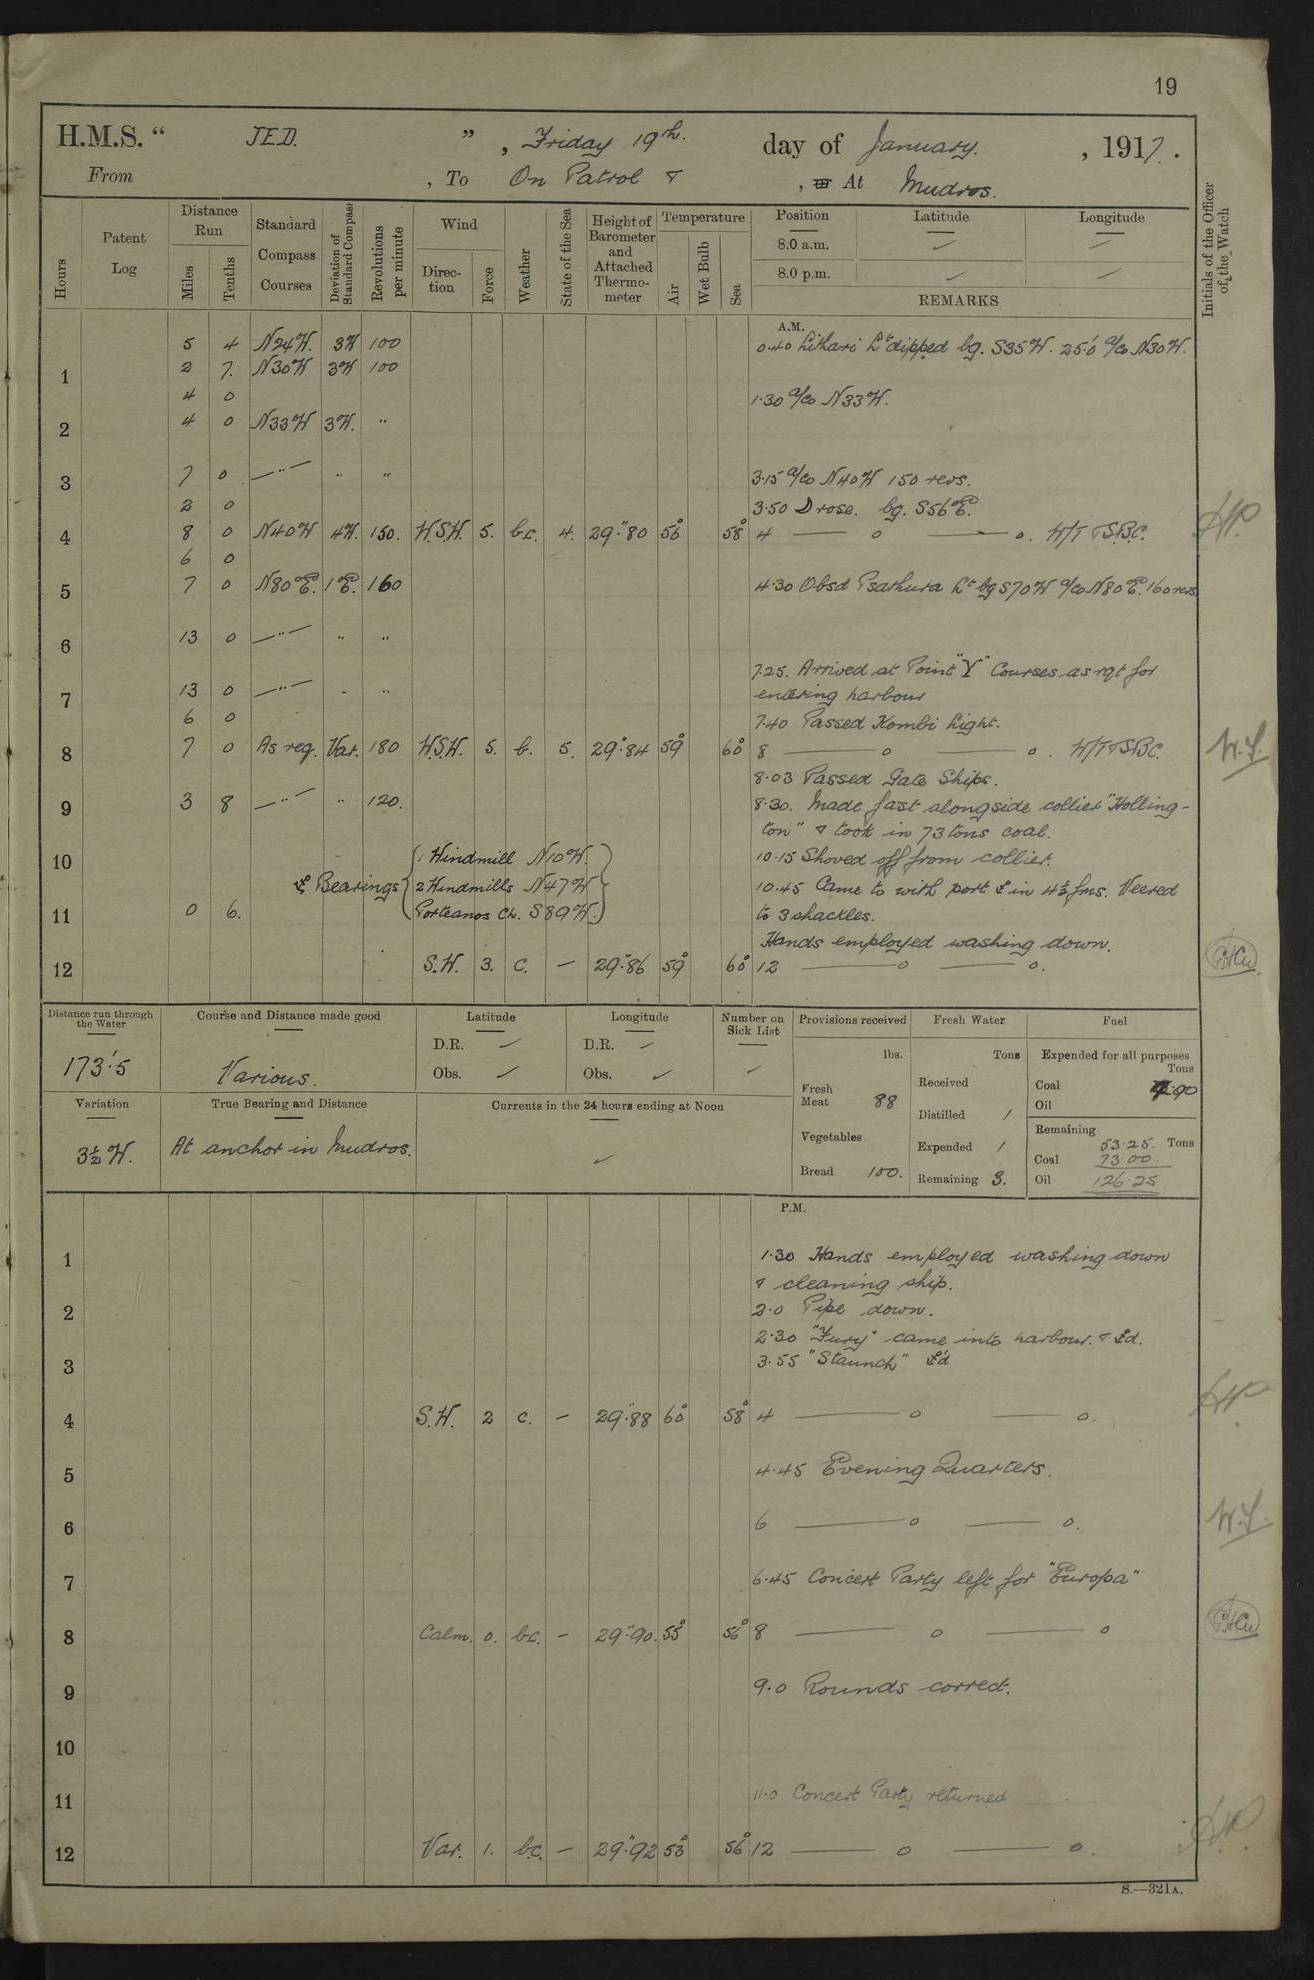 19
H.M.S. " JED. " , Friday 19th. day of January. , 1917.
From , To On Patrol & , or At Mudros.
Hours
Patent Log
Distance Run
Miles Tenths
Standard Compass Courses
Deviation of Standard Compass
Revolutions per minute
Wind
Direction Force
Weather
State of the Sea
Height of Barometer and Attached Thermometer
Temperature
Air Wet Bulb Sea
Position Latitude Longitude
8.0 a.m. ✓ ✓
8.0 p.m. ✓ ✓
REMARKS
Initials of the Officer of the Watch
A.M.
5 4 N24W. 3W 100 0.40 Lithari Lt dipped bg. S35W. 25.'0 a/co N30W.
1 2 7. N30W 3W 100
4 0 1.30 a/co N33W.
2 4 0 N33W 3W. "
3 7 0 —"— " " 3.15 a/co N40W 150 revs.
2 0 3.50 D rose. bg. S56E.
4 8 0 N40W 4W. 150. W.S.W. 5. bc. 4. 29".80 56° 58° 4 — o — o. W/T & S.B.C.
6 0
5 7 0 N80E. 1E. 160 4.30 Obsd Psathura Lt bg S70W a/co N80E. 160 revs
6 13 0 —"— " "
7.25. Arrived at Point "Y" Courses as rqt for
7 13 0 —"— " " entering harbour
6 0 7.40 Passed Kombi Light.
8 7 0 As req. Var. 180 W.S.W. 5. b. 5. 29".84 59° 60° 8 — o — o. W/T & S.B.C.
8.03 Passed Gate Ships.
9 3 8 —"— " 120. 8.30. Made fast alongside collier "Holling-
ton" & took in 73 tons coal.
10 1 Windmill N10W. 10.15 Shoved off from collier.
⚓ Bearings 2 Windmills N47W 10.45 Came to with port ⚓ in 4½ fms. Veered
11 0 6. Porteanos Ch. S89W. to 3 shackles.
Hands employed washing down.
12 S.W. 3. c. — 29".86 59° 60° 12 — o — o.
Distance run through the Water
173'.5
Course and Distance made good
Various.
Latitude
D.R. ✓
Obs. ✓
Longitude
D.R. ✓
Obs. ✓
Number on Sick List
✓
Variation
3½ W.
True Bearing and Distance
At anchor in Mudros.
Currents in the 24 hours ending at Noon
✓
Provisions received
lbs.
Fresh Meat 88
Vegetables
Bread 100.
Fresh Water
Tons
Received
Distilled /
Expended /
Remaining 3.
Fuel
Expended for all purposes
Tons
Coal
Oil
Remaining
53.25 Tons
Coal 73.00.
Oil 126.25
P.M.
1 1.30 Hands employed washing down
& cleaning ship.
2 2.0 Pipe down.
2.30 "Fury" came into harbour. & ⚓d.
3 3.55 "Staunch" ⚓'d
4 S.W. 2 c. — 29".88 60° 58° 4 — o — o.
5 4.45 Evening Quarters.
6 6 — o — o.
7 6.45 Concert Party left for "Europa"
8 Calm. 0. bc. — 29".90. 55° 56° 8 — o — o
9 9.0 Rounds correct.
10
11 11.0 Concert Party returned
12 Var. 1. b.c. — 29".92 53° 56° 12 — o — o.
S.—321A.